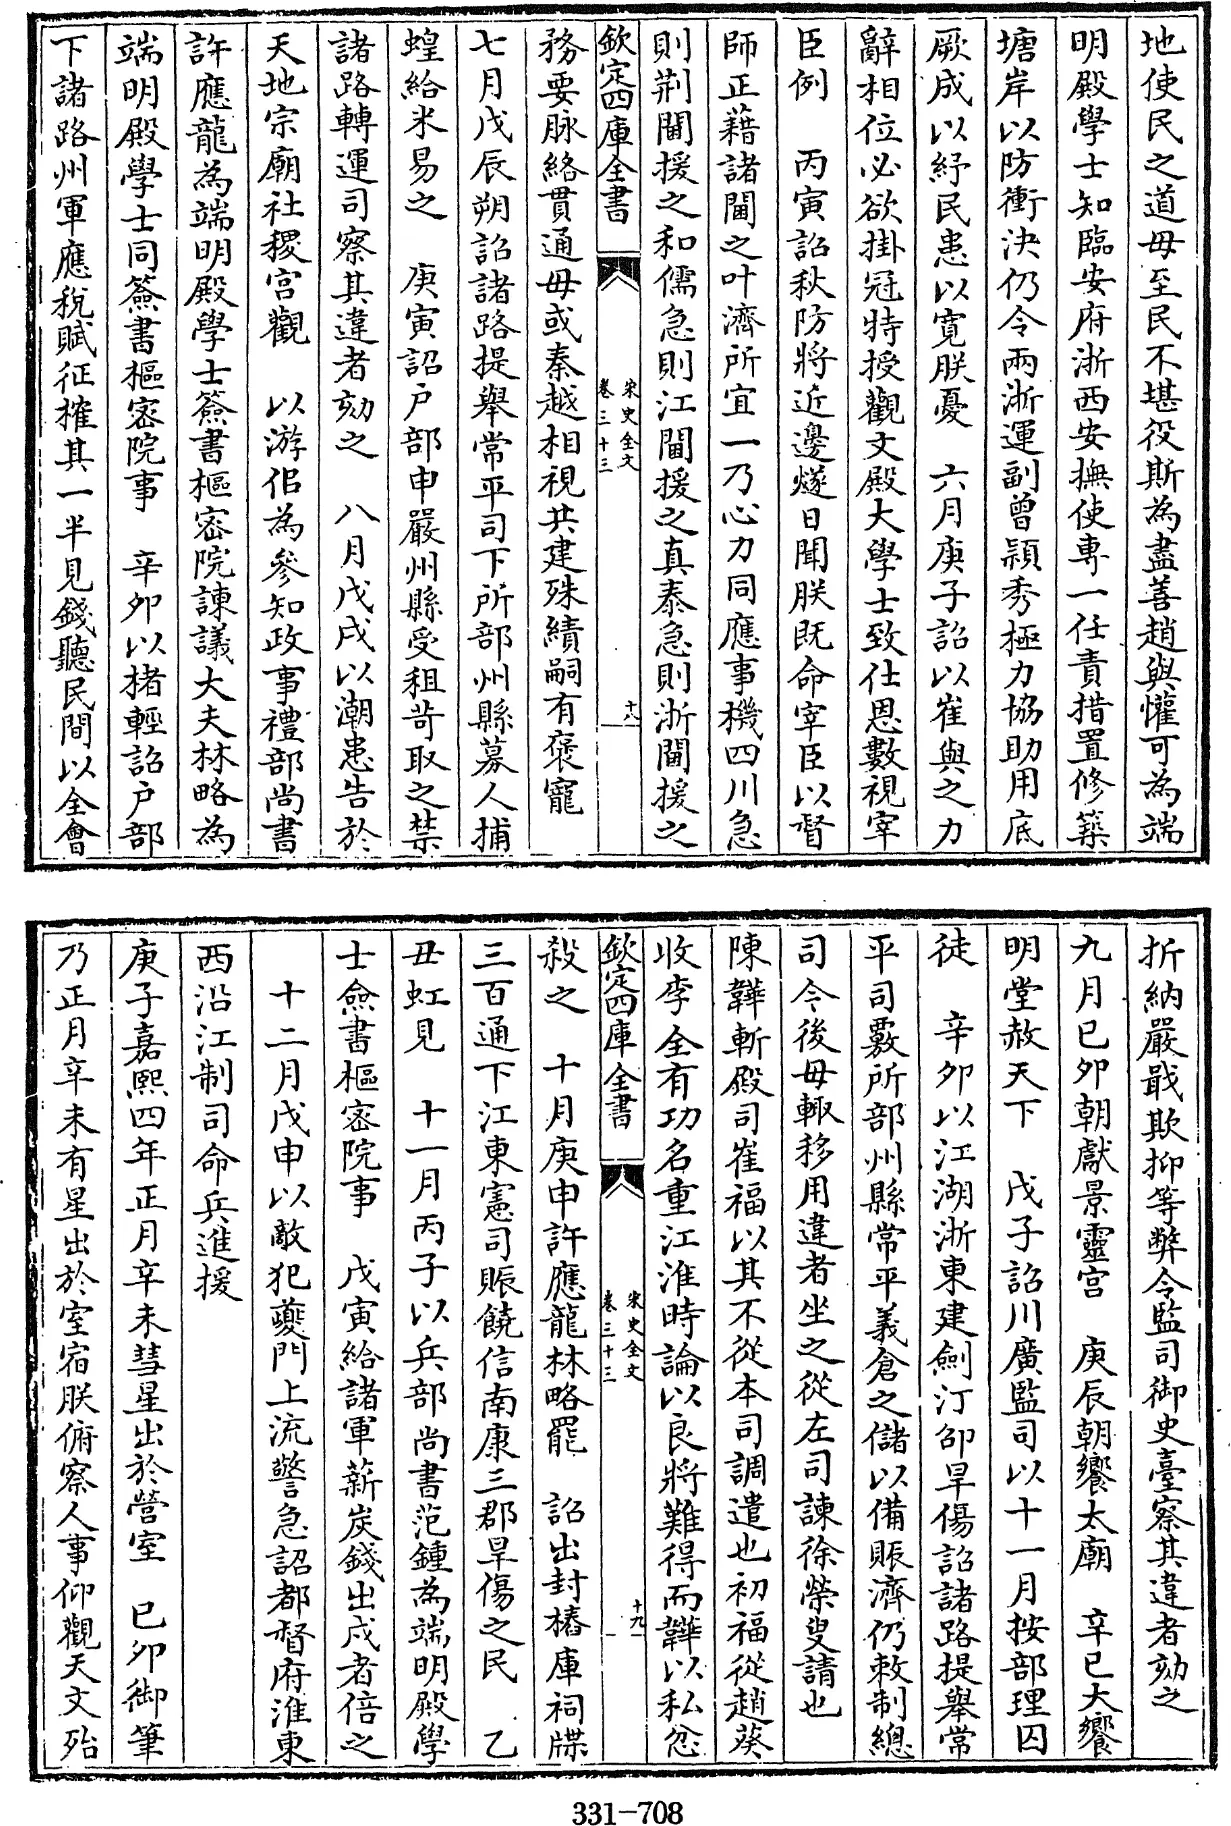 地使民之道毋至民不堪役斯為盡善趙與懽可為端
明殿學士知臨安府浙西安撫使專一任責措置修築
塘岸以防衝決仍令兩浙運副曾穎秀極力協助用底
厥成以紓民患以寛朕憂　六月庚子詔以崔與之力
辭相位必欲掛冠特授觀文殿大學士致仕恩數視宰
臣例　丙寅詔秋防將近邊燧日聞朕既命宰臣以督
師正藉諸閫之叶濟所宜一乃心力同應事機四川急
則荆閫援之和儒急則江閫援之真泰急則浙閫援之
欽定四庫全書
宋史全文
卷三十三
十八
務要脉絡貫通毋或秦越相視共建殊績嗣有褒寵
七月戊辰朔詔諸路提舉常平司下所部州縣募人捕
蝗給米易之　庚寅詔户部申嚴州縣受租苛取之禁
諸路轉運司察其違者劾之　八月戊戌以潮患告於
天地宗廟社稷宫觀　以游佀為參知政事禮部尚書
許應龍為端明殿學士簽書樞密院諫議大夫林略為
端明殿學士同簽書樞密院事　辛卯以楮輕詔户部
下諸路州軍應稅賦征榷其一半見錢聽民間以全會
折納嚴戢欺抑等弊令監司御史臺察其違者劾之
九月己卯朝獻景靈宫　庚辰朝饗太廟　辛巳大饗
明堂赦天下　戊子詔川廣監司以十一月按部理囚
徒　辛卯以江湖浙東建劍汀邵旱傷詔諸路提舉常
平司覈所部州縣常平義倉之儲以備賑濟仍敕制總
司令後毋輒移用違者坐之從左司諫徐榮叟請也
陳韡斬殿司崔福以其不從本司調遣也初福從趙葵
收李全有功名重江淮時論以良將難得而韡以私忿
欽定四庫全書
宋史全文
卷三十三
十九
殺之　十月庚申許應龍林略罷　詔出封樁庫祠牒
三百通下江東憲司賑饒信南康三郡旱傷之民　乙
丑虹見　十一月丙子以兵部尚書范鍾為端明殿學
士僉書樞密院事　戊寅給諸軍薪炭錢出戍者倍之
十二月戊申以敵犯夔門上流警急詔都督府淮東
西沿江制司命兵進援
庚子嘉熙四年正月辛未彗星出於營室　己卯御筆
乃正月辛未有星出於室宿朕俯察人事仰觀天文殆
331-708